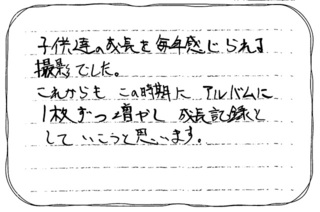 子供達の成長を毎年感じられる
撮影でした。
これからも この時期に アルバムに
1枚ずつ増やし 成長記録と
して いこうと思います。